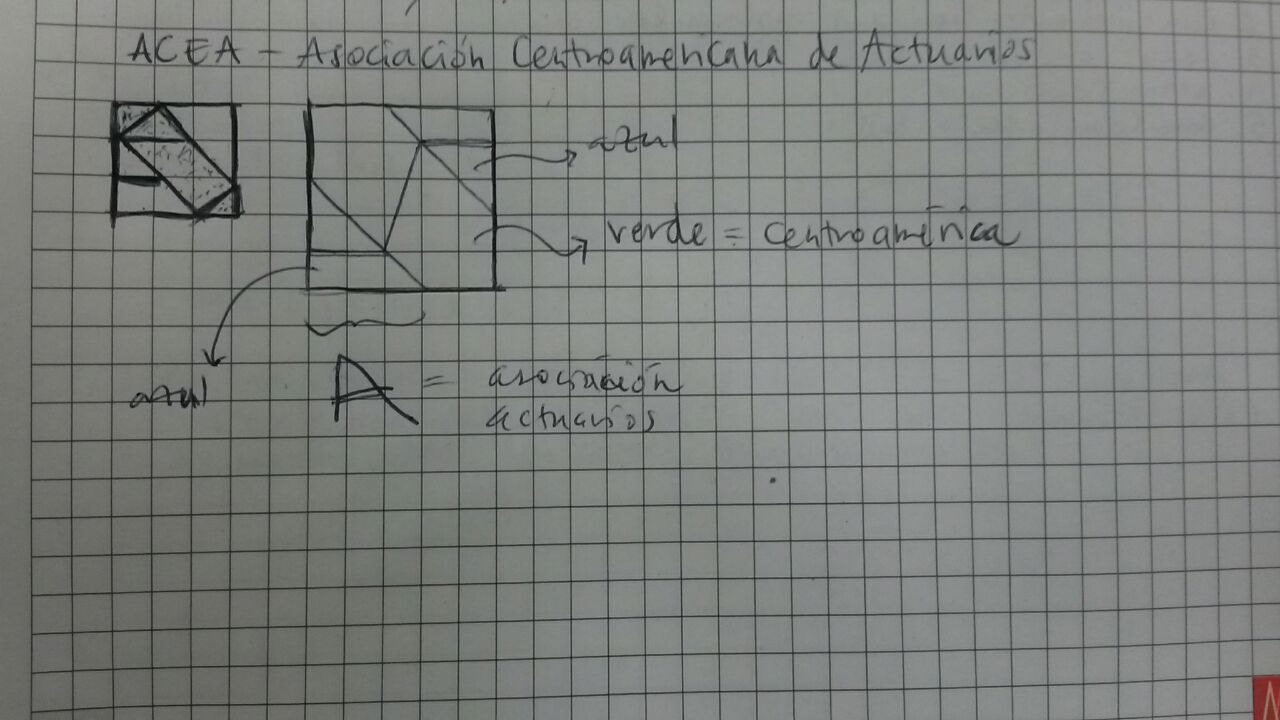 ACEA - Asociación Centroamericana de Actuarios
azul
verde = Centroamérica
azul
A = asociación
actuarios